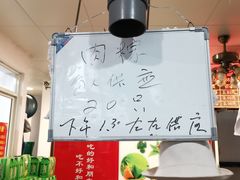 肉粽
每人供应
20只
下午1:30左右供应
吃的好和朋
吃不好和